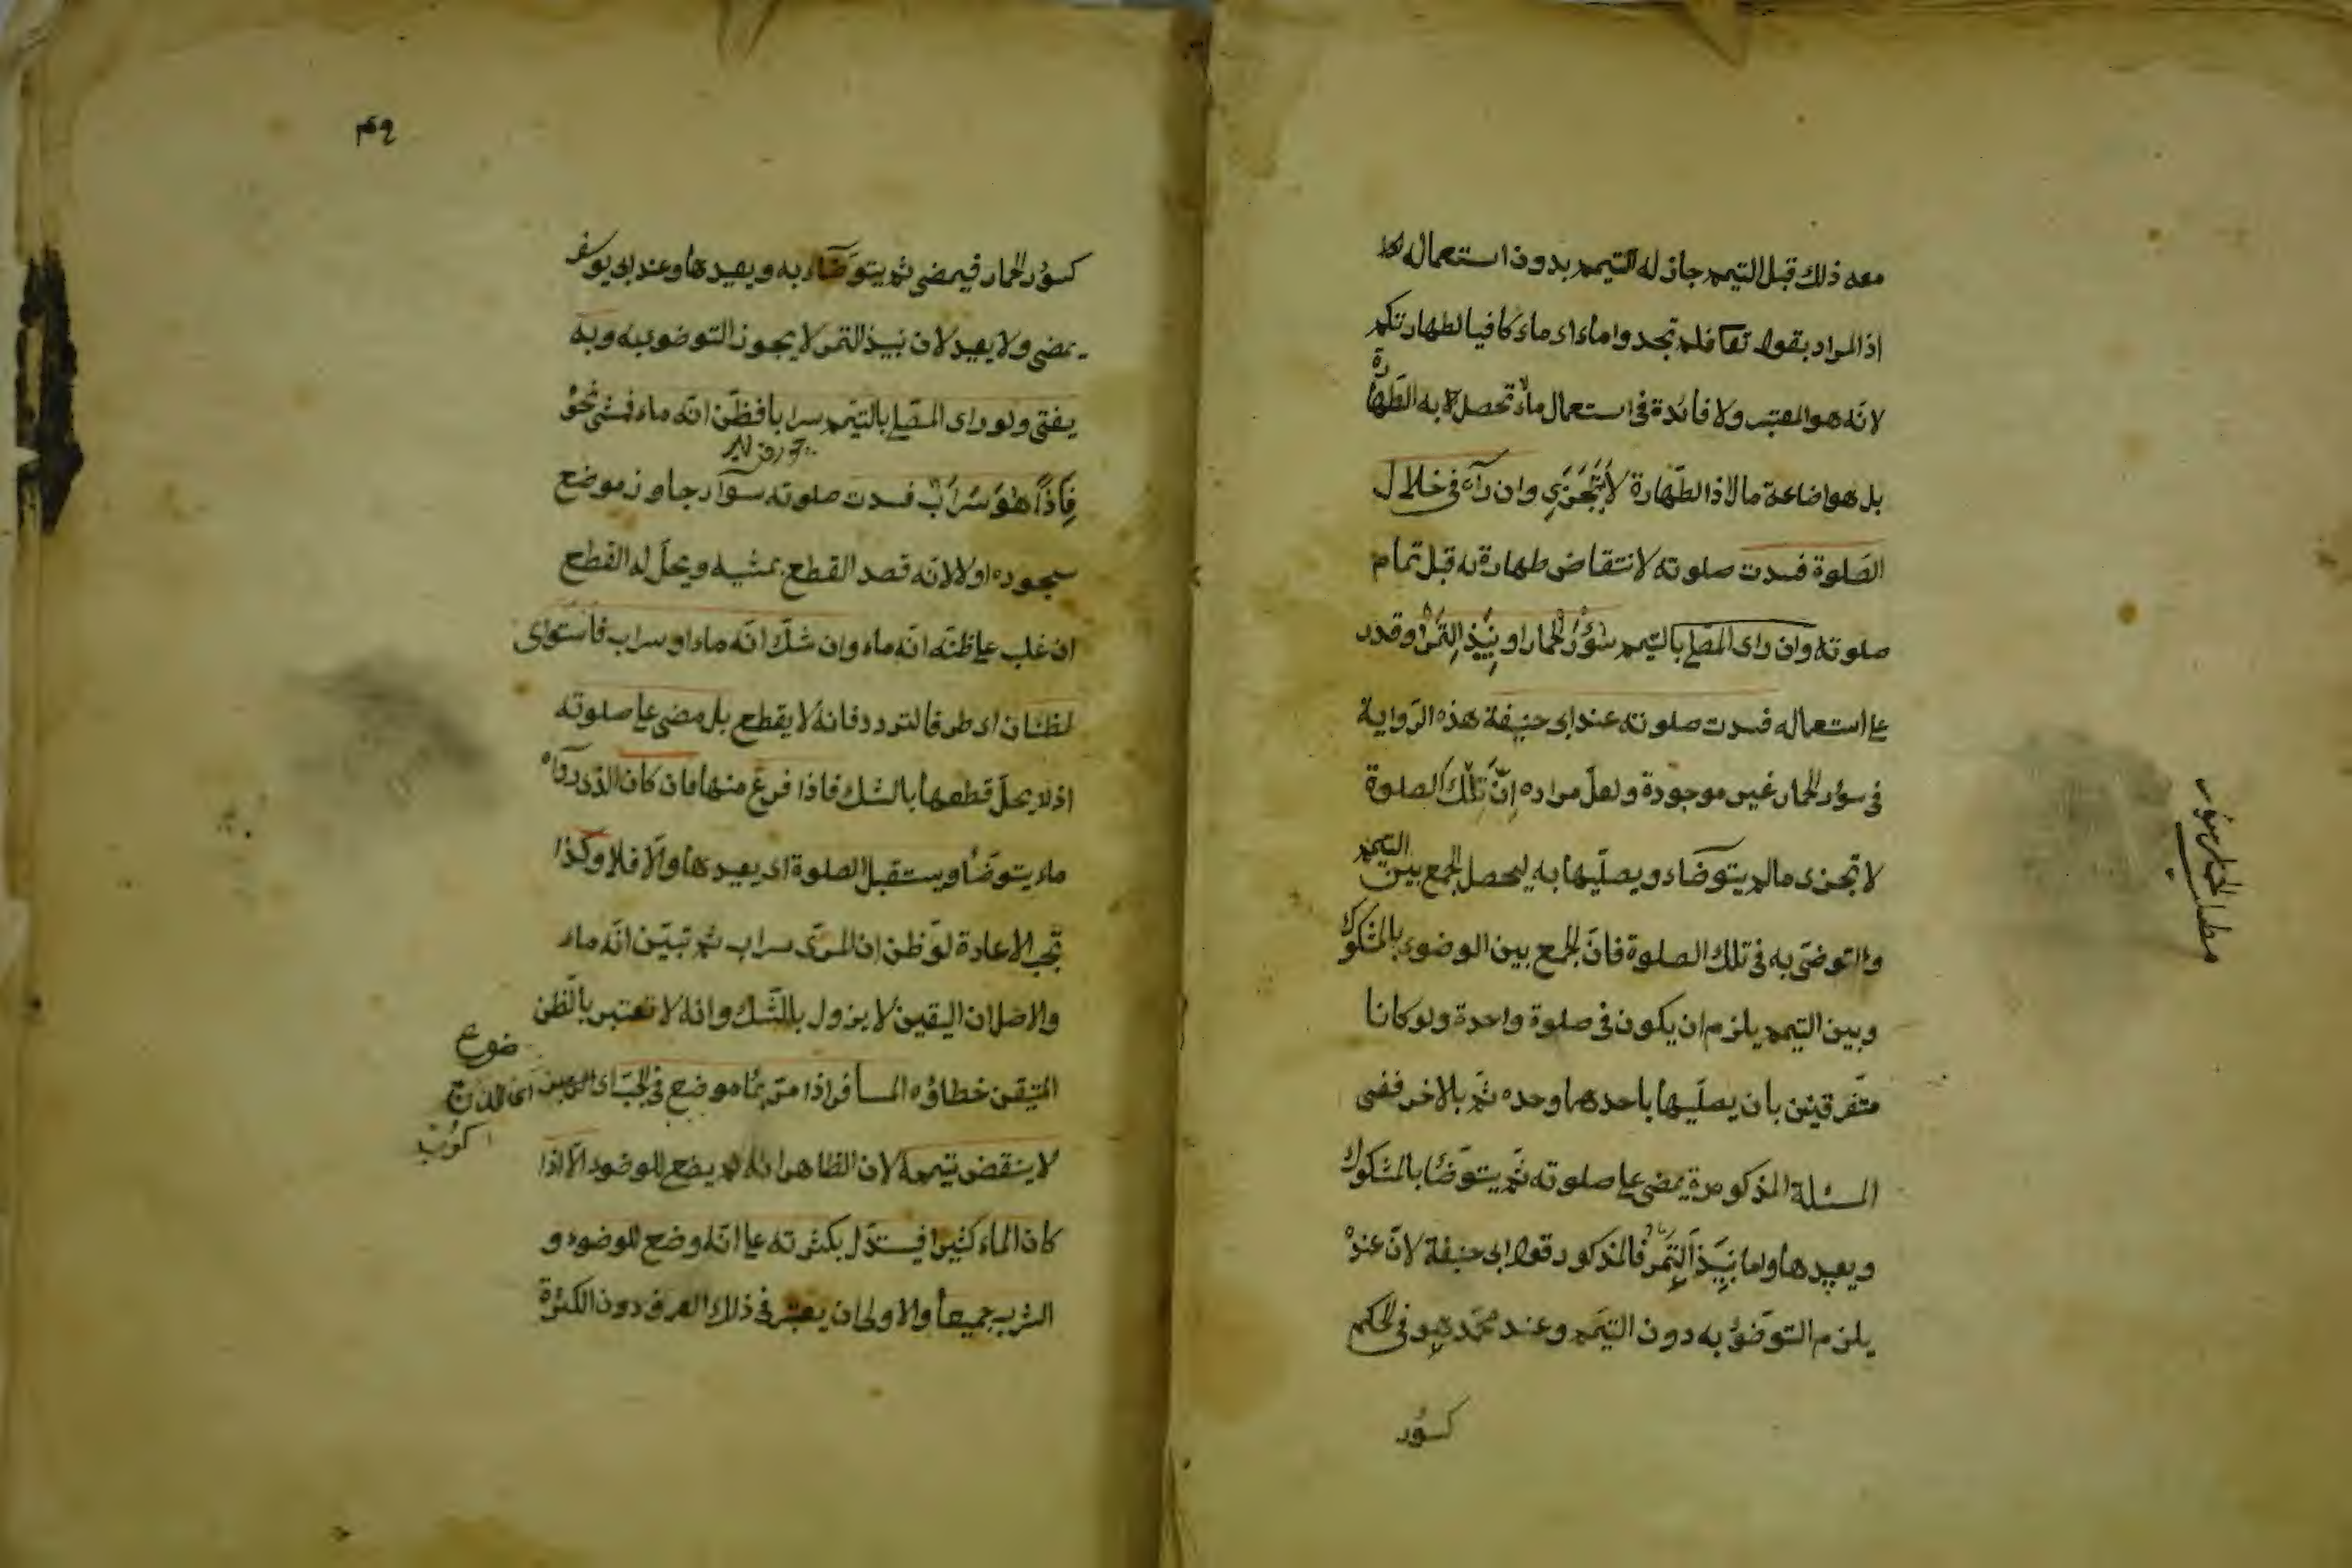 معه ذلك قبل التيمم جاز له التيمم بدون استعماله
اذ المراد بقوله تعا فلم تجدوا ماء اى ماء كافيا لطهارتكم
لانه هو المعتبر ولا فائدة فى استعمال ماء لا تحصل به الطهارة
بل هو اضاعة مال اذ الطهارة لا تتجزى وان رآه فى خلال
الصلوة فسدت صلوته لانتقاض طهارته قبل تمام
صلوته وان راى المصلى بالتيمم سؤر الحمار او نبيذ التمر وقدر
على استعماله فسدت صلوته عند ابى حنيفة هذه الرواية
فى سؤر الحمار غير موجودة ولعل مراده ان تلك الصلوة
لا تجزى ما لم يتوضاء ويصليها به ليحصل الجمع بين التيمم
والتوضى به فى تلك الصلوة فان الجمع بين الوضوء بالمشكوك
وبين التيمم يلزم ان يكون فى صلوة واحدة ولو كانا
متفرقين بان يصليها باحدهما وحده ثم بالاخر ففى
المسئلة المذكورة يمضى على صلوته ثم يتوضأ بالمشكوك
ويعيدها واما نبيذ التمر فالمذكور قول ابى حنيفة لان عنده
يلزم التوضؤ به دون التيمم وعند محمد هو فى الحكم
كسؤر
٤٩
كسؤر الحمار فيمضى ثم يتوضاء به ويعيدها وعند ابى يوسف
يمضى ولا يعيد لان نبيذ التمر لا يجوز التوضو به وبه
يفتى ولو راى المصلى بالتيمم سرابا فظن انه ماء فمشى نحو
فاذا هو سراب فسدت صلوته سواء جاوز موضع
سجوده او لا لانه قصد القطع بمشيه ويحل له القطع
ان غلب على ظنه انه ماء وان شك انه ماء او سراب فاستوى
الظنان اى طرفا التردد فانه لا يقطع بل مضى على صلوته
اذ لا يحل قطعها بالشك فاذا فرغ منها فان كان الذى رواه
ماء يتوضأ ويستقبل الصلوة اى يعيدها والا فلا وكذا
تجب الاعادة لو ظن ان المرئى سراب ثم تبين انه ماء
والاصل ان اليقين لا يزول بالشك وانه لا تعتبر بالظن
المتيقن خطاؤه المسافر اذا مر بماء موضع فى الحب اى
لا ينقض تيممه لان الظاهر انه لم يضع للوضوء الا اذا
كان الماء كثيرا فيستدل بكثرته على انه وضع للوضوء و
الشرب جميعا والاولى ان يعتبر فى ذلك العرف دون الكثرة